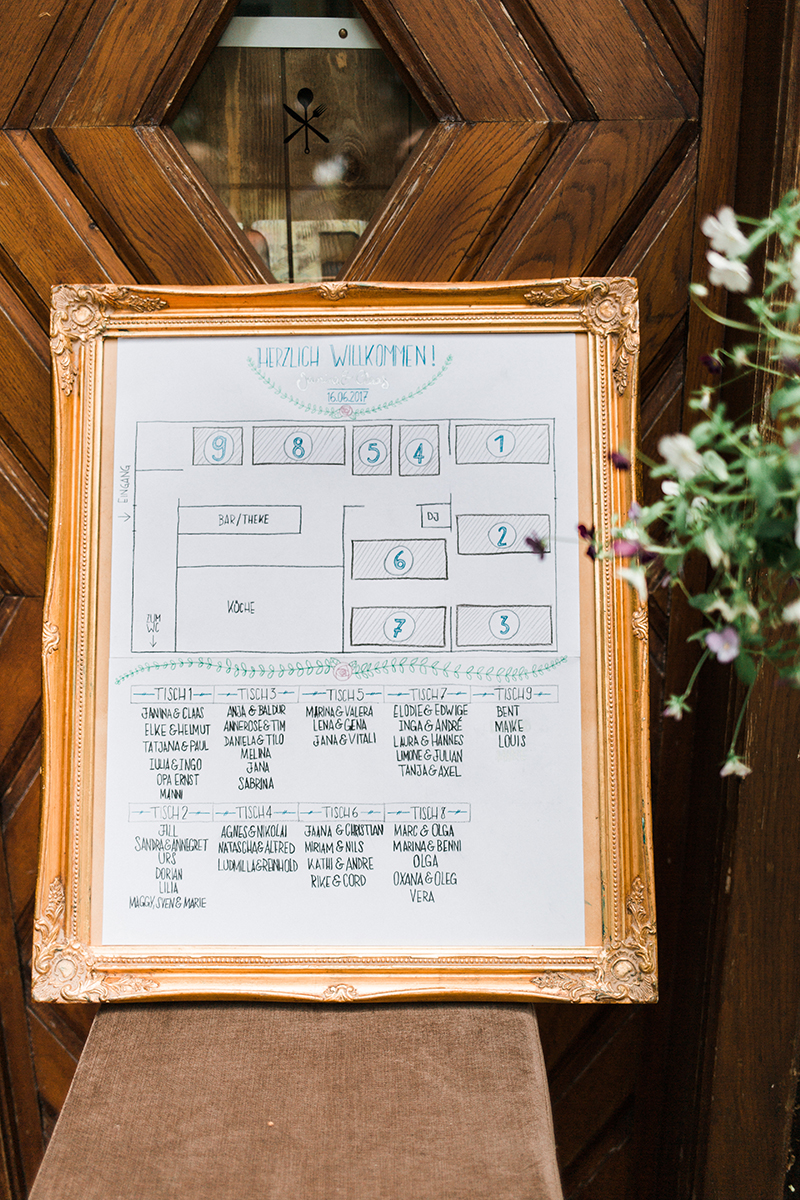 HERZLICH WILLKOMMEN!
16.06.2017
9 8 5 4 1
EINGANG
BAR/THEKE
DJ
2
6
KÜCHE
ZUM
WC
7 3
TISCH 1
JANINA & CLAAS
ELKE & HELMUT
TATJANA & PAUL
JULIA & INGO
OPA ERNST
MANNI
TISCH 3
ANJA & BALDUR
ANNEROSE & TIM
DANIELA & TILO
MELINA
JANA
SABRINA
TISCH 5
MARINA & VALERA
LENA & GENA
JANA & VITALI
TISCH 7
ELODIE & EDWIGE
INGA & ANDRÉ
LAURA & HANNES
LIMONE & JULIAN
TANJA & AXEL
TISCH 9
BENT
MAIKE
LOUIS
TISCH 2
JILL
SANDRA & ANNEGRET
URS
DORIAN
LILIA
MAGGY, SVEN & MARIE
TISCH 4
AGNES & NIKOLAI
NATASCHA & ALFRED
LUDMILLA & REINHOLD
TISCH 6
JAANA & CHRISTIAN
MIRIAM & NILS
KATHI & ANDRE
RIKE & CORD
TISCH 8
MARC & OLGA
MARINA & BENNI
OLGA
OXANA & OLEG
VERA